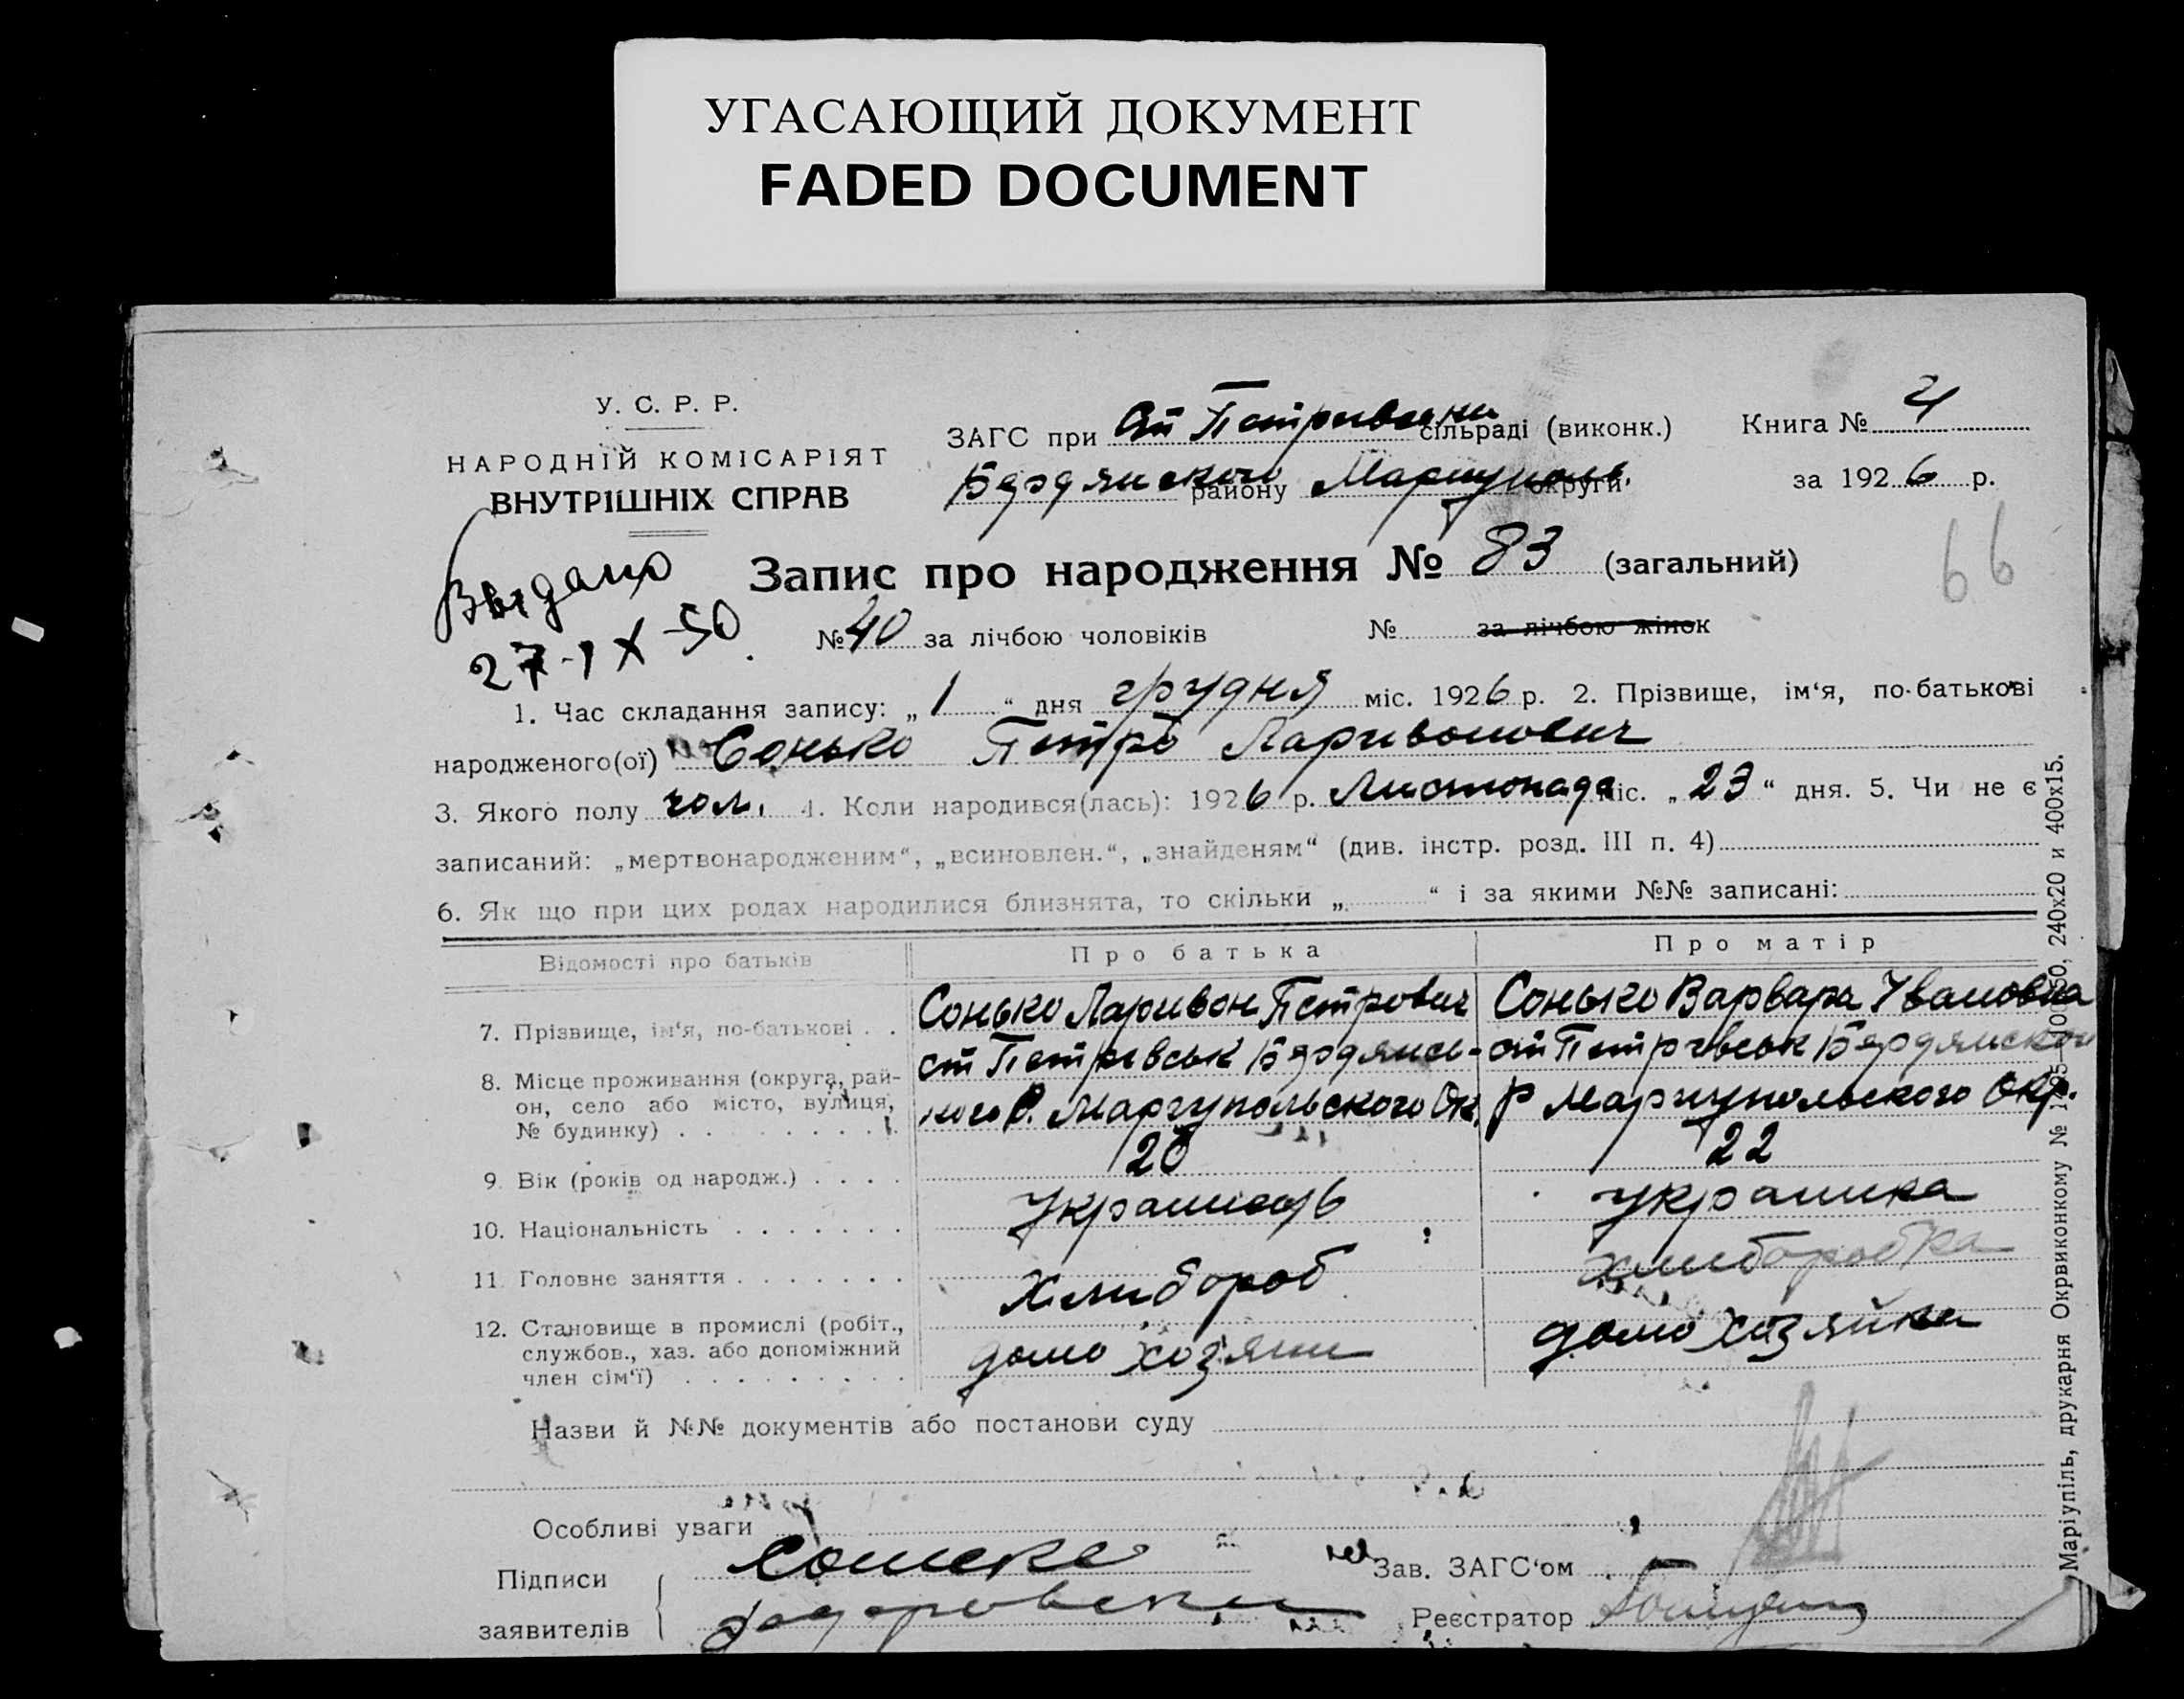 УГАСАЮЩИЙ ДОКУМЕНТ
FADED DOCUMENT
У. С. Р. Р.
НАРОДНІЙ КОМІСАРІЯТ
ВНУТРІШНІХ СПРАВ
ЗАГС при Ст Петрівськи сільраді (виконк.) Книга № 4
Бердянского району Мариуполь. округи за 1926 р.
Выдано
27-IX-50
Запис про народження № 83 (загальний)
66
№ 40 за лічбою чоловіків № за лічбою жінок
1. Час складання запису: „1“ дня грудня міс. 1926 р. 2. Прізвище, ім‘я, по-батькові
народженого(ої) Сонько Петро Ларивонович
3. Якого полу чол. 4. Коли народився(лась): 1926 р. Листопада міс. „23“ дня. 5. Чи не є
записаний: „мертвонародженим“, „всиновлен.“, „знайденям“ (див. інстр. розд. III п. 4)
6. Як що при цих родах народилися близнята, то скільки „ “ і за якими №№ записані:
Відомості про батьків Про батька Про матір
7. Прізвище, ім‘я, по-батькові . . Сонько Ларивон Петрович Сонько Варвара Ивановна
8. Місце проживання (округа, рай-
он, село або місто, вулиця,
№ будинку) . . . . . . . .
ст Петрівськ Бердянсь- ст Петрівськ Бердянской
кого Р. Маріупольского Ок. Р Маріупольского Окр.
9. Вік (років од народж.) . . . . 22
10. Національність . . . . . . . Украинець Украинка
11. Головне заняття . . . . . . . Хлибороб хлиборобка
12. Становище в промислі (робіт.,
службов., хаз. або допоміжний
член сім‘ї) . . . . . . . . .
домо хозяин домо хозяйка
Назви й №№ документів або постанови суду
Особливі уваги
Підписи
заявителів
Зав. ЗАГС‘ом
Реєстратор
Маріупіль, друкарня Окрвиконкому № 240х20 и 400х15.